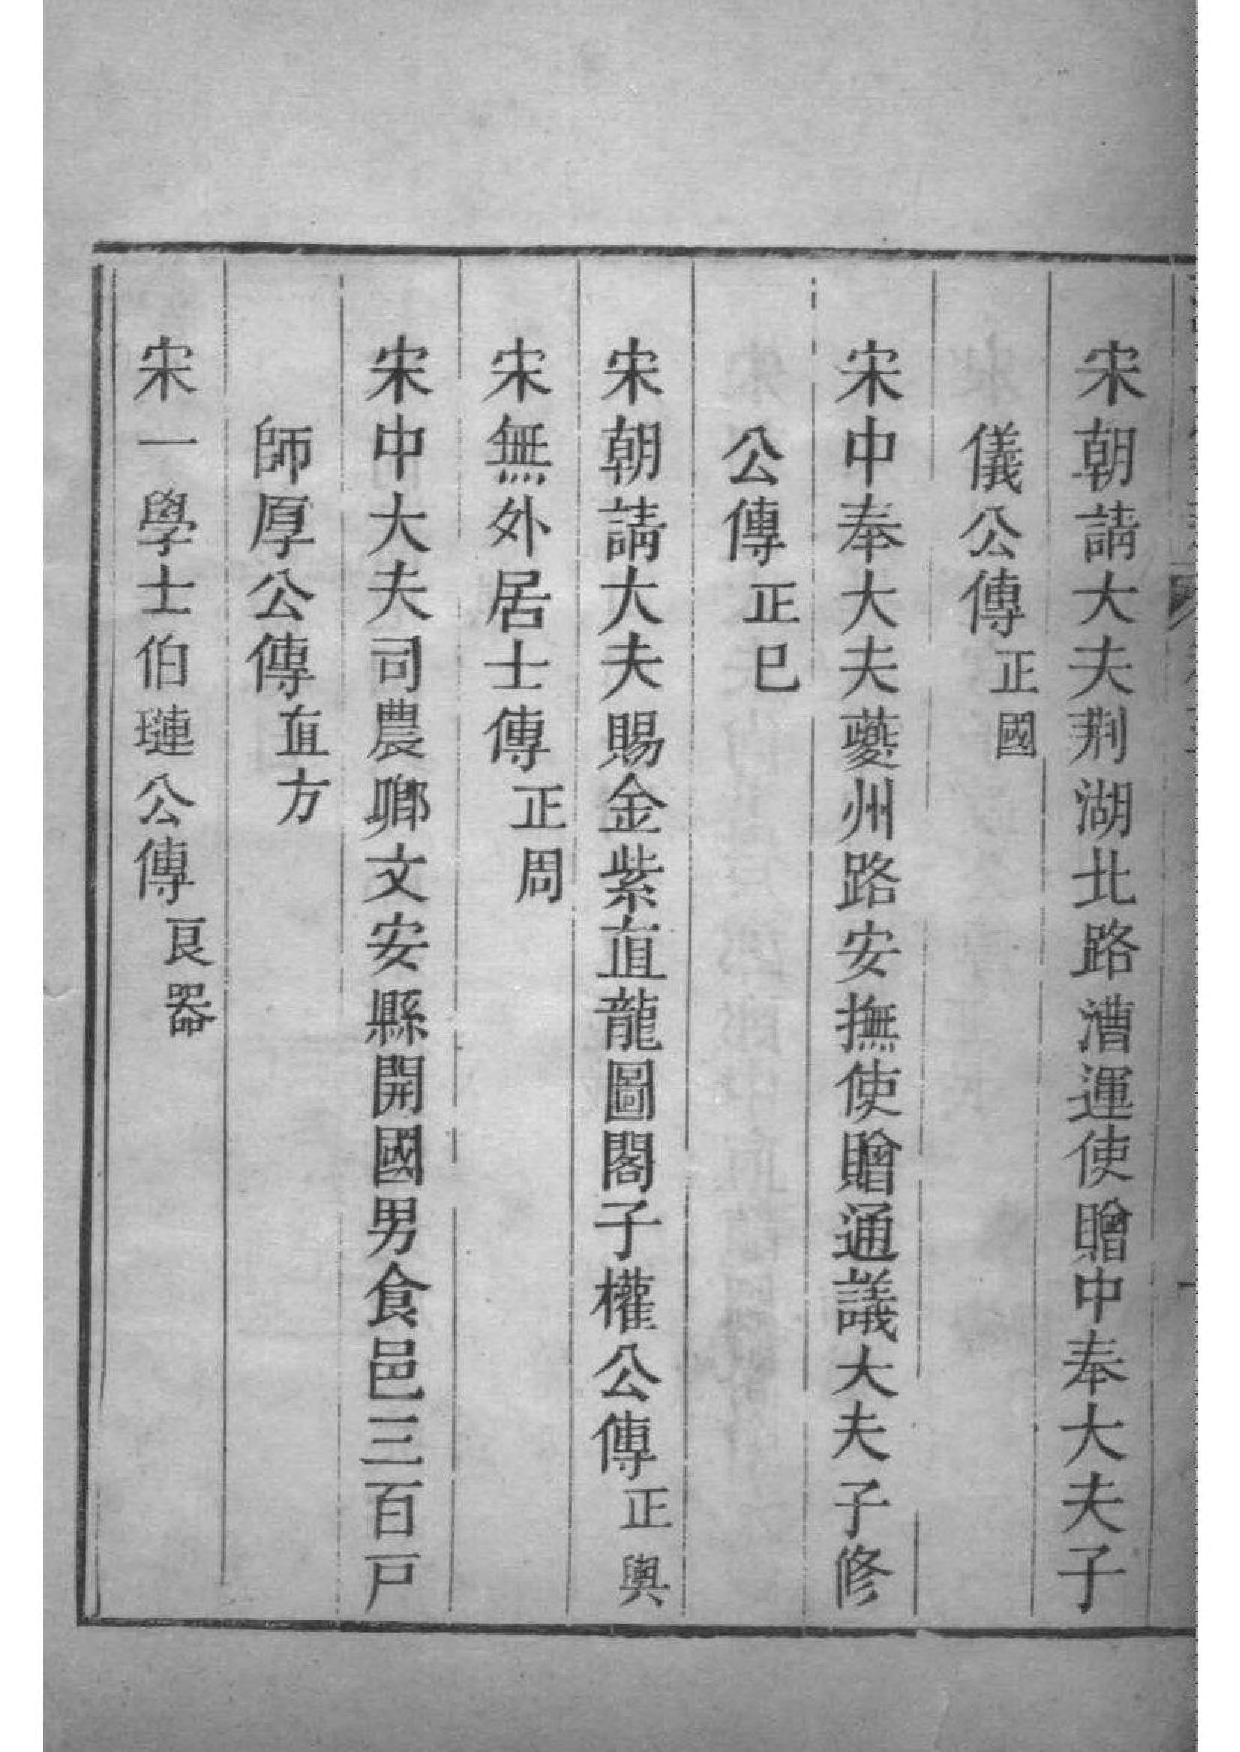 宋朝請大夫荆湖北路漕運使贈中奉大夫子
儀公傳正國
宋中奉大夫夔州路安撫使贈通議大夫子修
公傳正己
宋朝請大夫賜金紫直龍圖閣子權公傳正輿
宋無外居士傳正周
宋中大夫司農卿文安縣開國男食邑三百戸
師厚公傳直方
宋一學士伯璉公傳良器